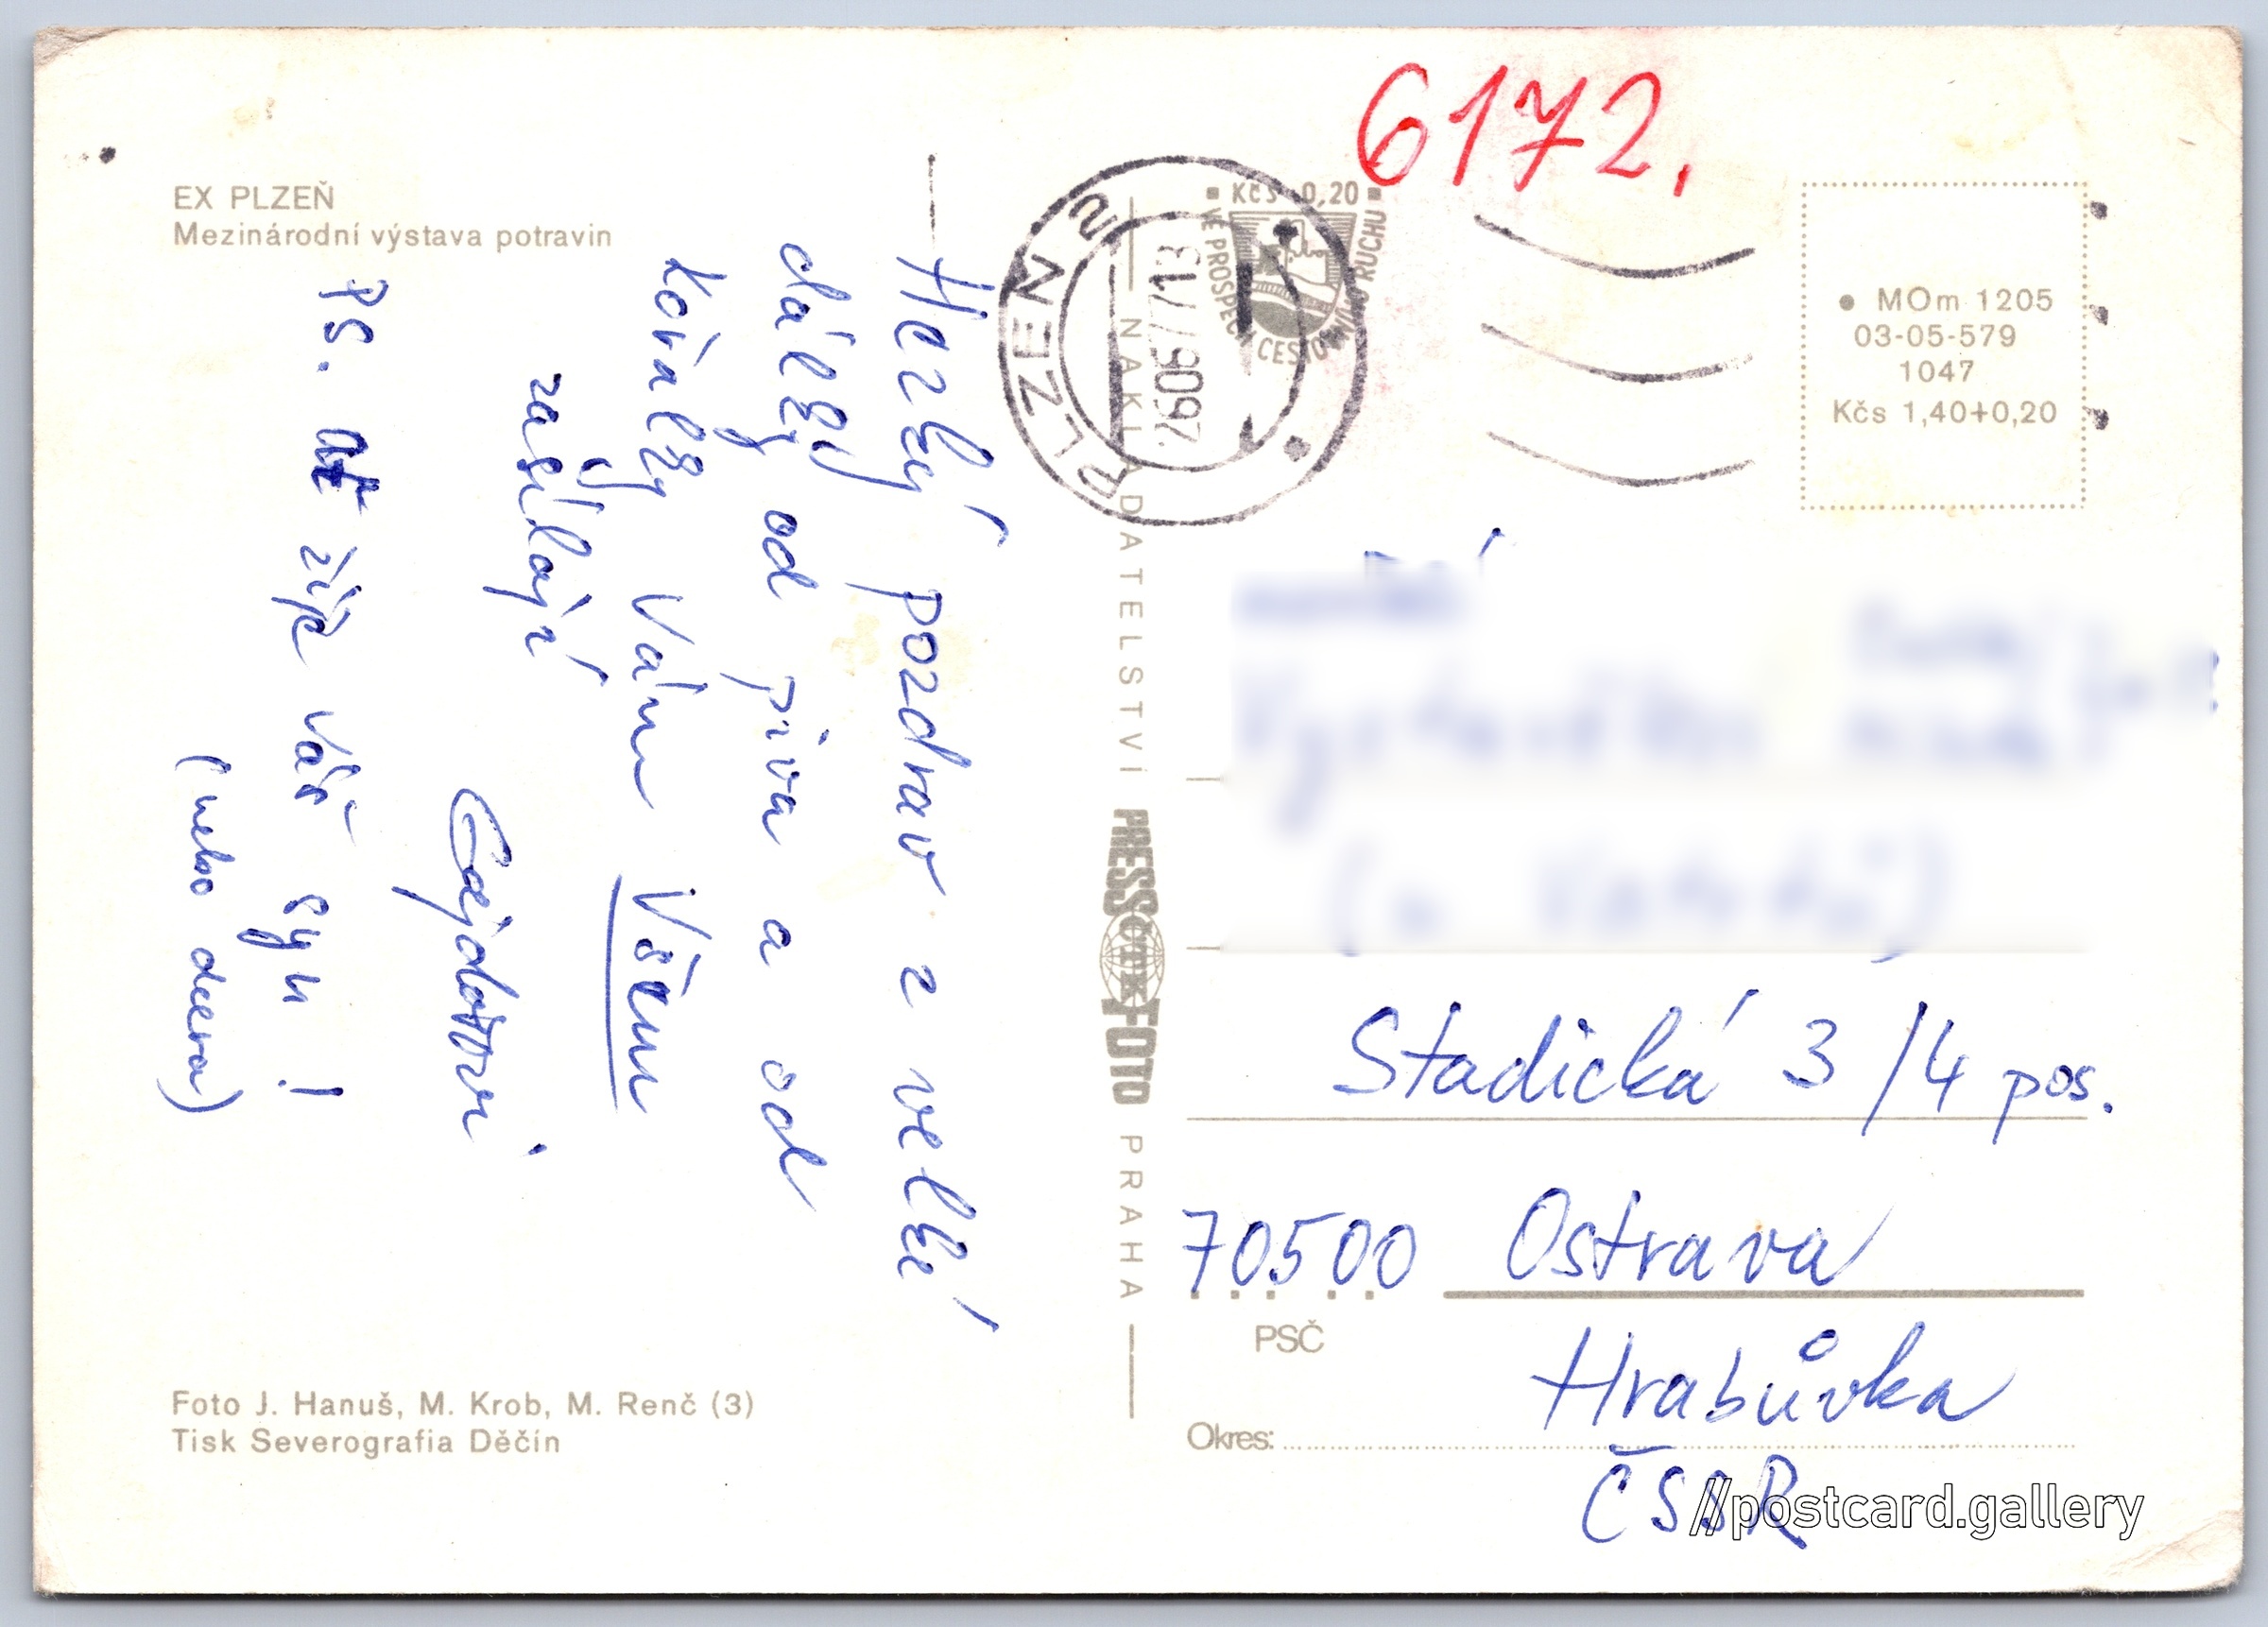 EX PLZEŇ
Mezinárodní výstava potravin
Hezký pozdrav z velké
dálky od piva a od
Vám Všem
zasílají
PS. Ať žije váš syn !
(nebo dcera)
Foto J. Hanuš, M. Krob, M. Renč (3)
Tisk Severografia Děčín
NAKLADATELSTVÍ PRESSFOTO PRAHA
ČTK
6172.
PLZEŇ 2
Kčs 0,20
VE PROSPĚCH CESTOVNÍHO RUCHU
MOm 1205
03-05-579
1047
Kčs 1,40+0,20
Stadická 3/4 pos.
70500 Ostrava
PSČ
Hrabůvka
Okres:
ČSSR
//postcard.gallery